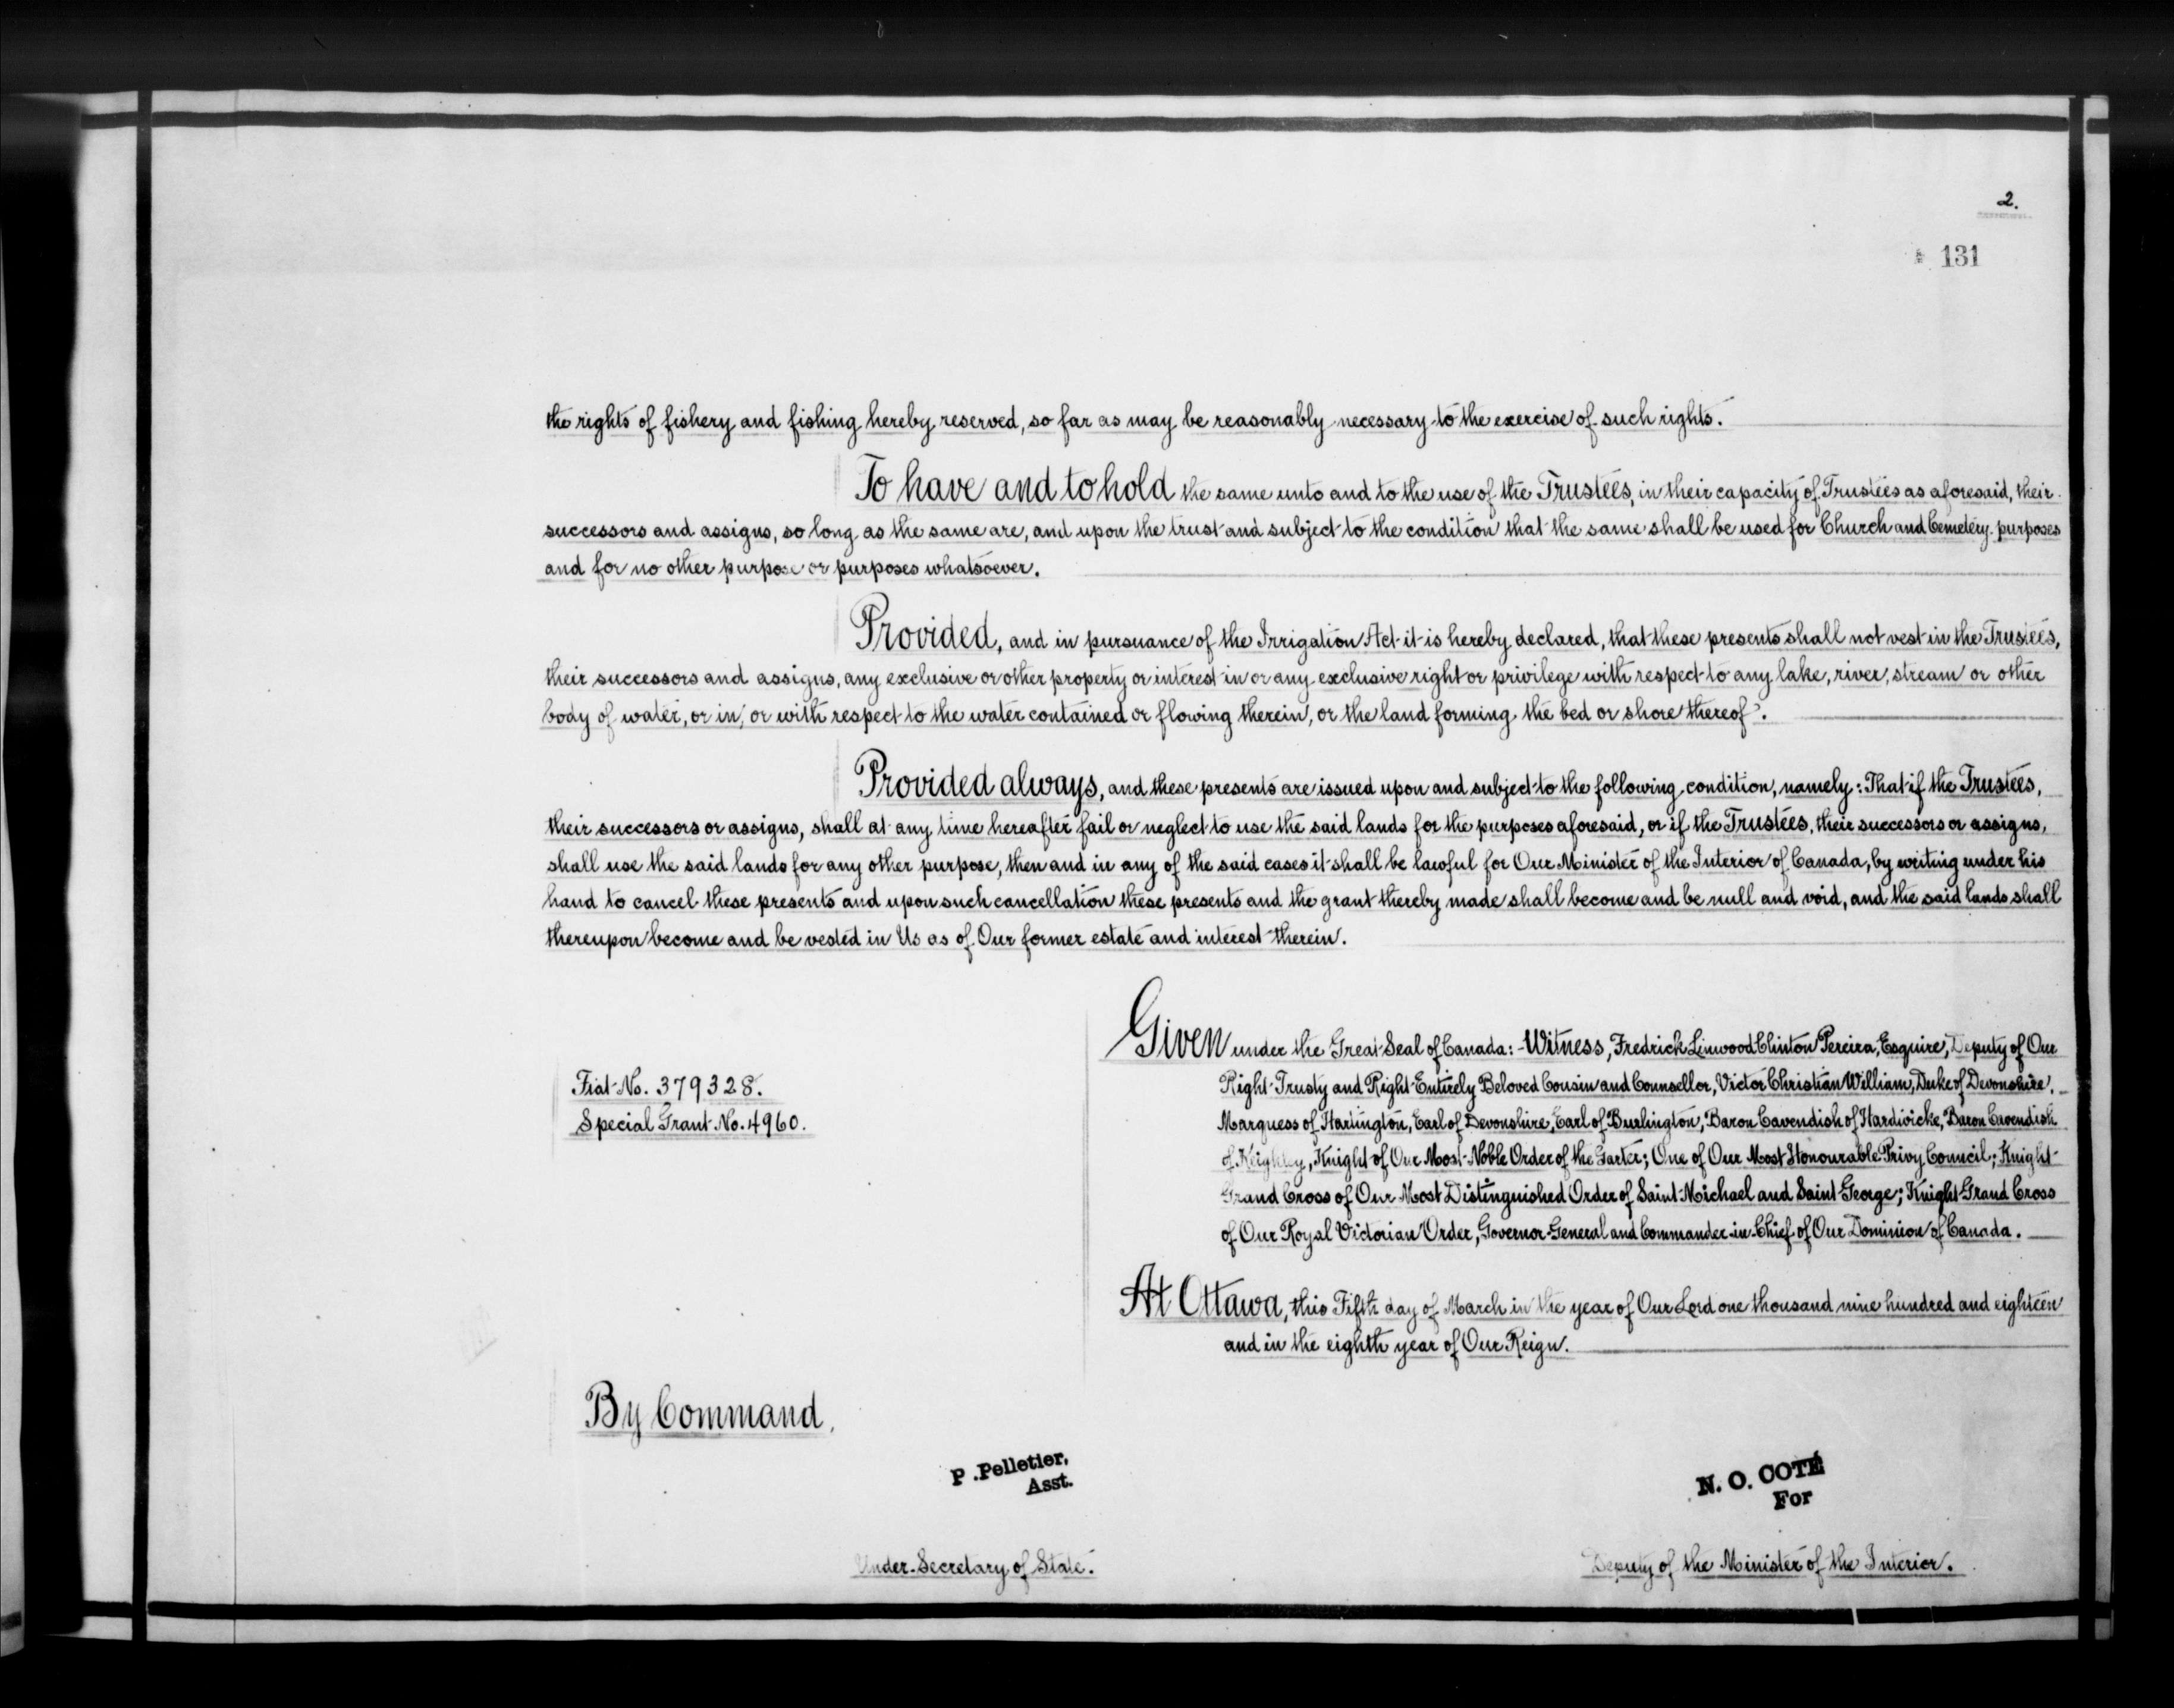 2.
131
the rights of fishery and fishing hereby reserved, so far as may be reasonably necessary to the exercise of such rights.
To have and to hold the same unto and to the use of the Trustees, in their capacity of Trustees as aforesaid, their
successors and assigns, so long as the same are, and upon the trust and subject to the condition that the same shall be used for Church and Cemetery purposes
and for no other purpose or purposes whatsoever.
Provided, and in pursuance of the Irrigation Act it is hereby declared, that these presents shall not vest in the Trustees,
their successors and assigns, any exclusive or other property or interest in or any exclusive right or privilege with respect to any lake, river, stream or other
body of water, or in, or with respect to the water contained or flowing therein, or the land forming the bed or shore thereof.
Provided always, and these presents are issued upon and subject to the following condition, namely: That if the Trustees,
their successors or assigns, shall at any time hereafter fail or neglect to use the said lands for the purposes aforesaid, or if the Trustees, their successors or assigns,
shall use the said lands for any other purpose, then and in any of the said cases it shall be lawful for Our Minister of the Interior of Canada, by writing under his
hand to cancel these presents and upon such cancellation these presents and the grant thereby made shall become and be null and void, and the said lands shall
thereupon become and be vested in Us as of Our former estate and interest therein.
Given under the Great Seal of Canada: - Witness, Fredrick Linwood Clinton Pereira, Esquire, Deputy of Our
Right Trusty and Right Entirely Beloved Cousin and Counsellor, Victor Christian William, Duke of Devonshire,
Marquess of Hartington, Earl of Devonshire, Earl of Burlington, Baron Cavendish of Hardwicke, Baron Cavendish
of Keighley, Knight of Our Most Noble Order of the Garter; One of Our Most Honourable Privy Council; Knight
Grand Cross of Our Most Distinguished Order of Saint Michael and Saint George; Knight Grand Cross
of Our Royal Victorian Order, Governor General and Commander-in-Chief of Our Dominion of Canada.
Fiat No. 379328.
Special Grant No. 4960.
At Ottawa, this Fifth day of March in the year of Our Lord one thousand nine hundred and eighteen
and in the eighth year of Our Reign.
By Command,
P. Pelletier,
Asst.
N. O. COTÉ
For
Under-Secretary of State.
Deputy of the Minister of the Interior.